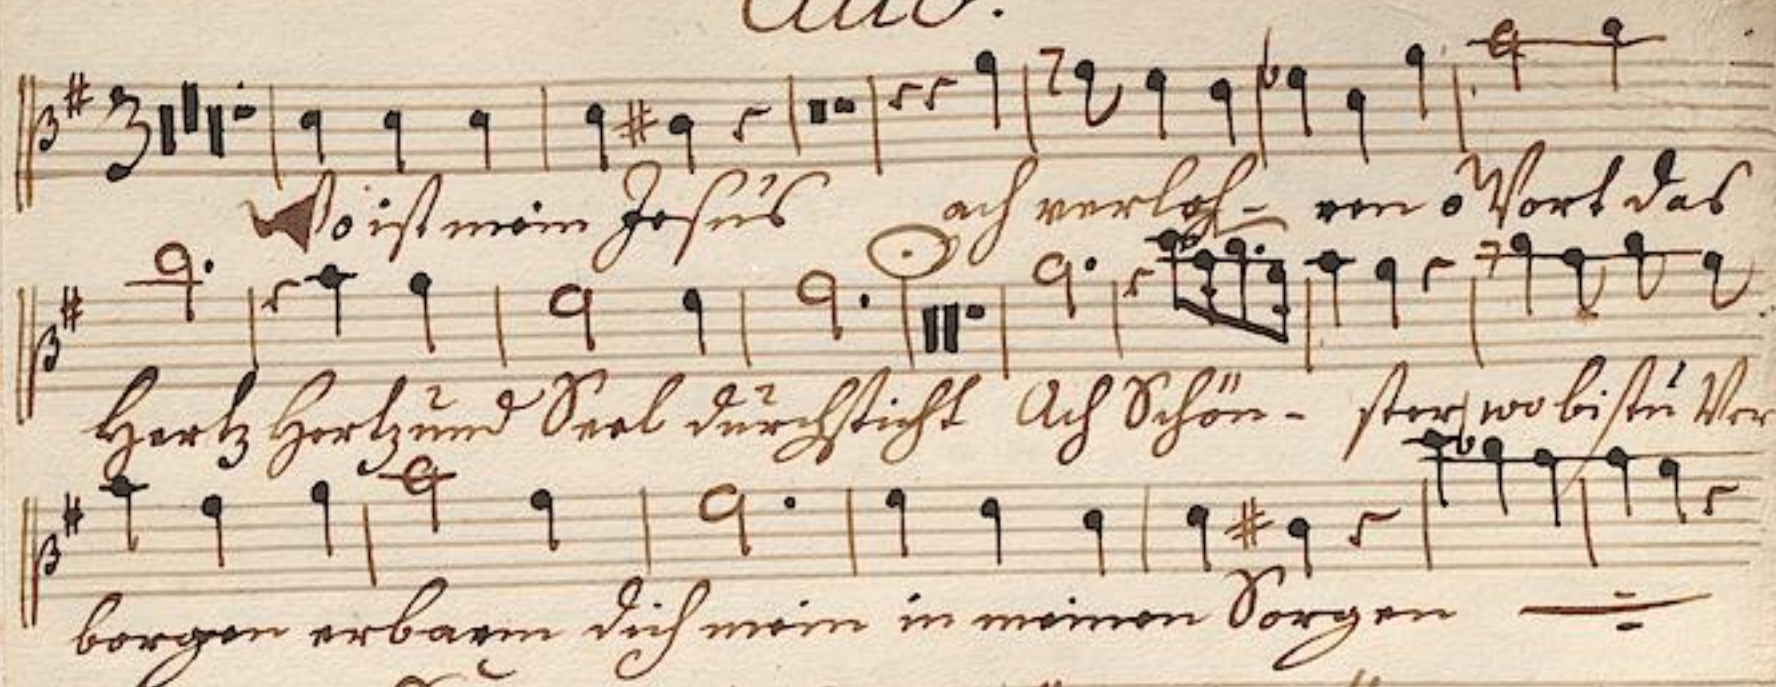 Wo ist mein Jesus ach verloh- ren o Wort das
Hertz Hertz und Seel durchsticht Ach Schön- ster wo bistu Ver
borgen erbarm dich mein in meinen Sorgen